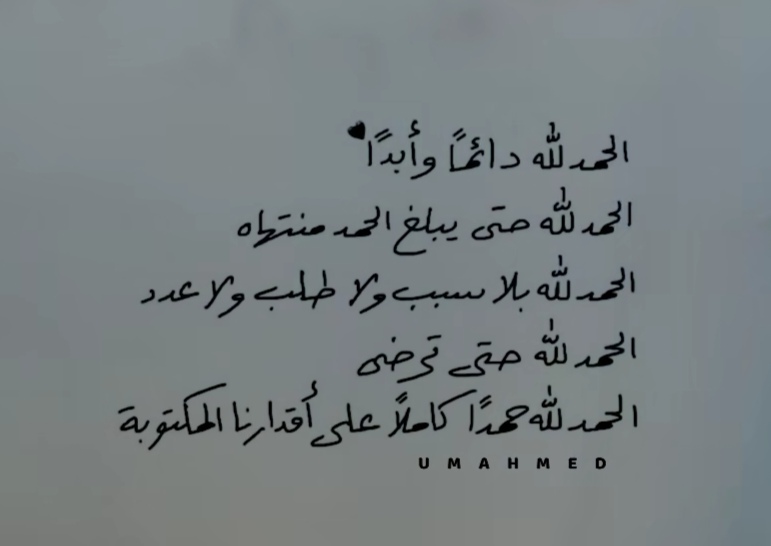 الحمد لله دائمًا وأبدًا
الحمد لله حتى يبلغ الحمد منتهاه
الحمد لله بلا سبب ولا طلب ولا عدد
الحمد لله حتى ترضى
الحمد لله حمدًا كاملًا على أقدارنا المكتوبة
UMAHMED